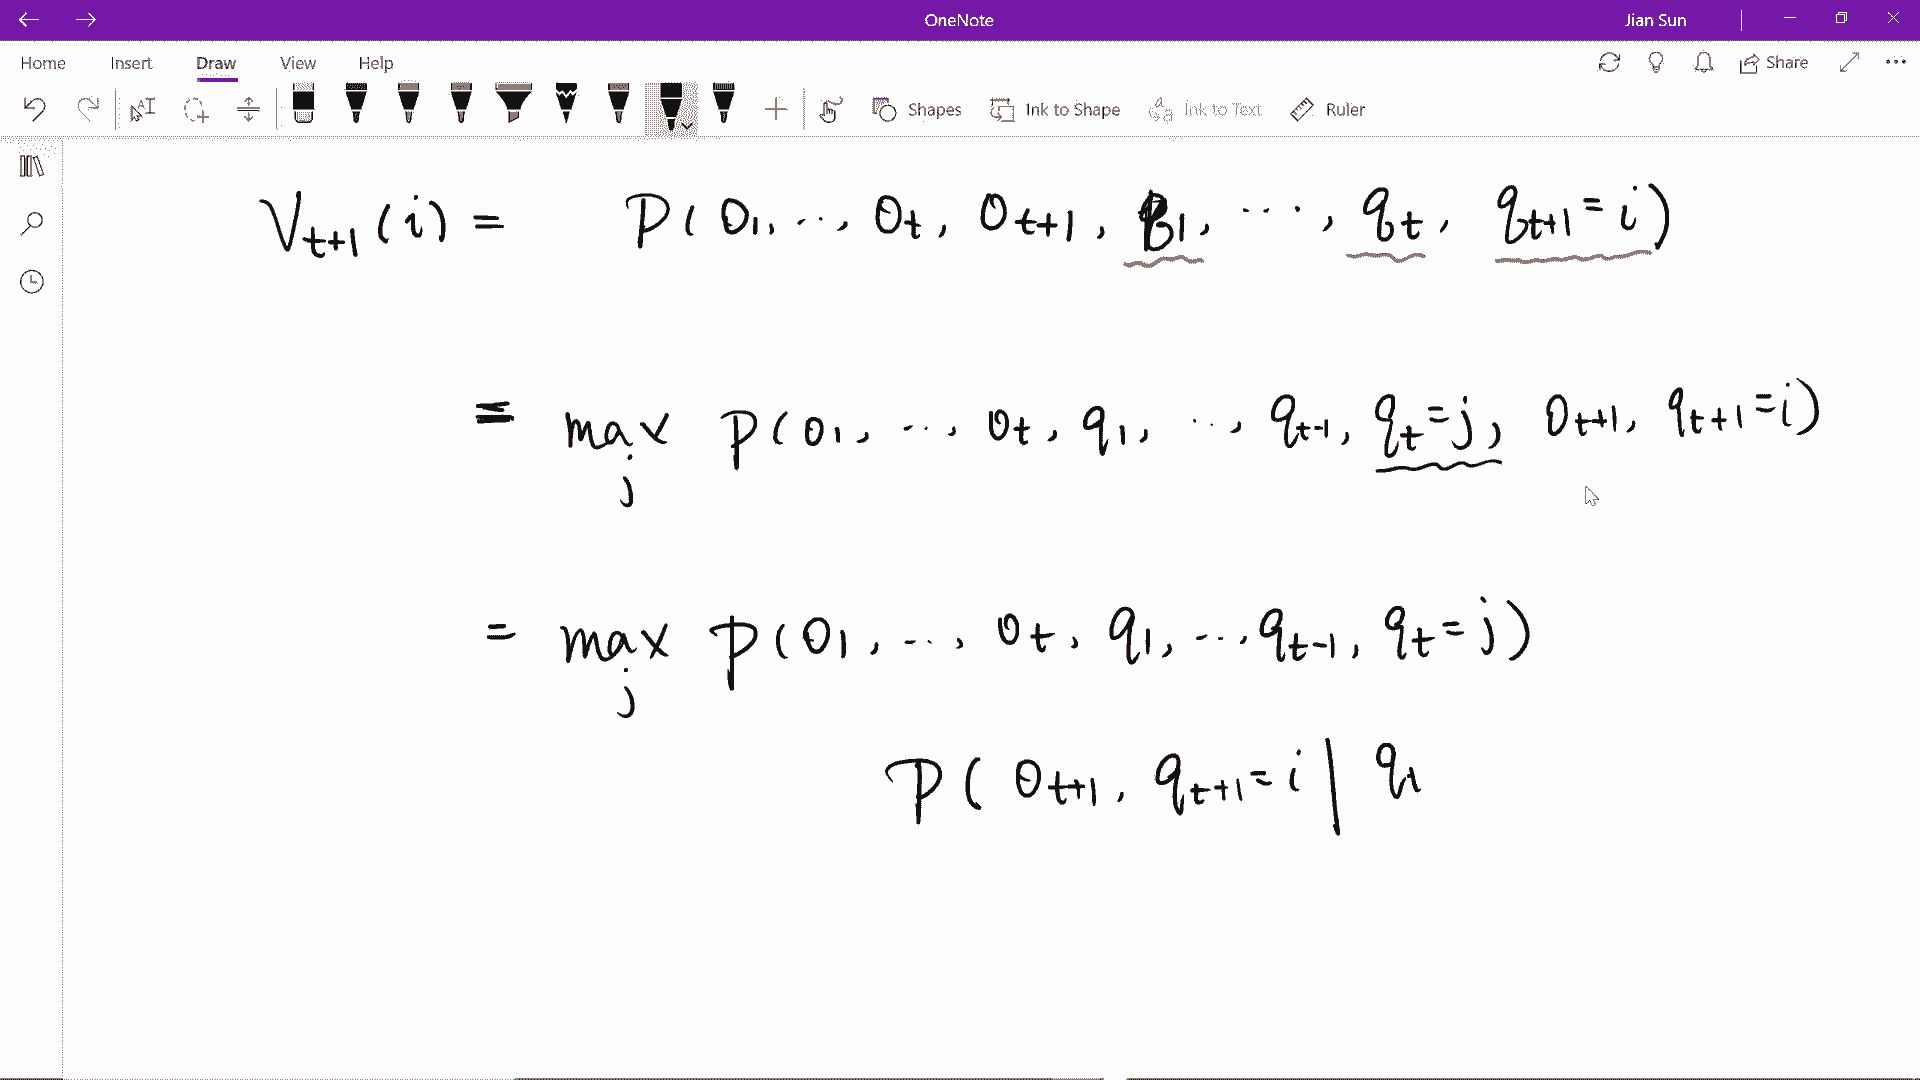 OneNote
Jian Sun
Home Insert Draw View Help
Share
Shapes Ink to Shape Ink to Text Ruler
V_{t+1}(i) = P(O_1, ..., O_t, O_{t+1}, q_1, ..., q_t, q_{t+1}=i)
= max_j P(O_1, ..., O_t, q_1, ..., q_{t-1}, q_t=j, O_{t+1}, q_{t+1}=i)
= max_j P(O_1, ..., O_t, q_1, ... , q_{t-1}, q_t=j)
P(O_{t+1}, q_{t+1}=i | q_1